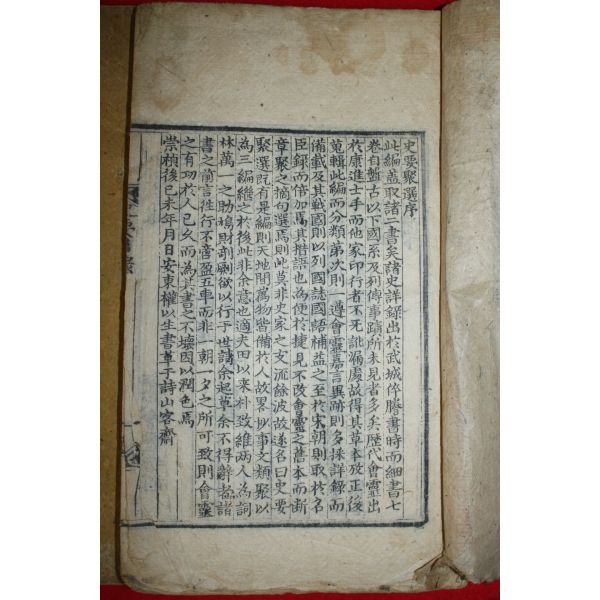 史要聚選序
此編蓋取諸二書矣諸史詳錄出於武城倅謄書時而細書七
卷自盤古以下國系及列傳事蹟所未見者多矣歷代會靈出
於康進士手而他家印行者不死訛漏處故得其草本攷正後
蒐輯此編而分類第次則一遵會靈嘉言異跡則多採詳錄而
備載及其戰國則以列國誌國語補益之至於宋朝則取於名
臣錄而倍加焉其措語也為便於捷見不改會靈之舊本而斷
章聚之摘句選焉則此莫非史家之支流餘波故遂名曰史要
聚選既有是編則天地間萬物皆備於人故畧以事文類聚以
為三編繼之於後此非余意也適夫田以采朴致維兩人為詞
林萬一之助鳩財剞劂欲以行于世請余起草余不得辭諸
書之前言徃行不啻盈五車而非一朝一夕之所可致則會靈
之有功於人已久而為其書之不壞因以潤色焉
崇禎後己未年月日安東權以生書草于詩山客齋